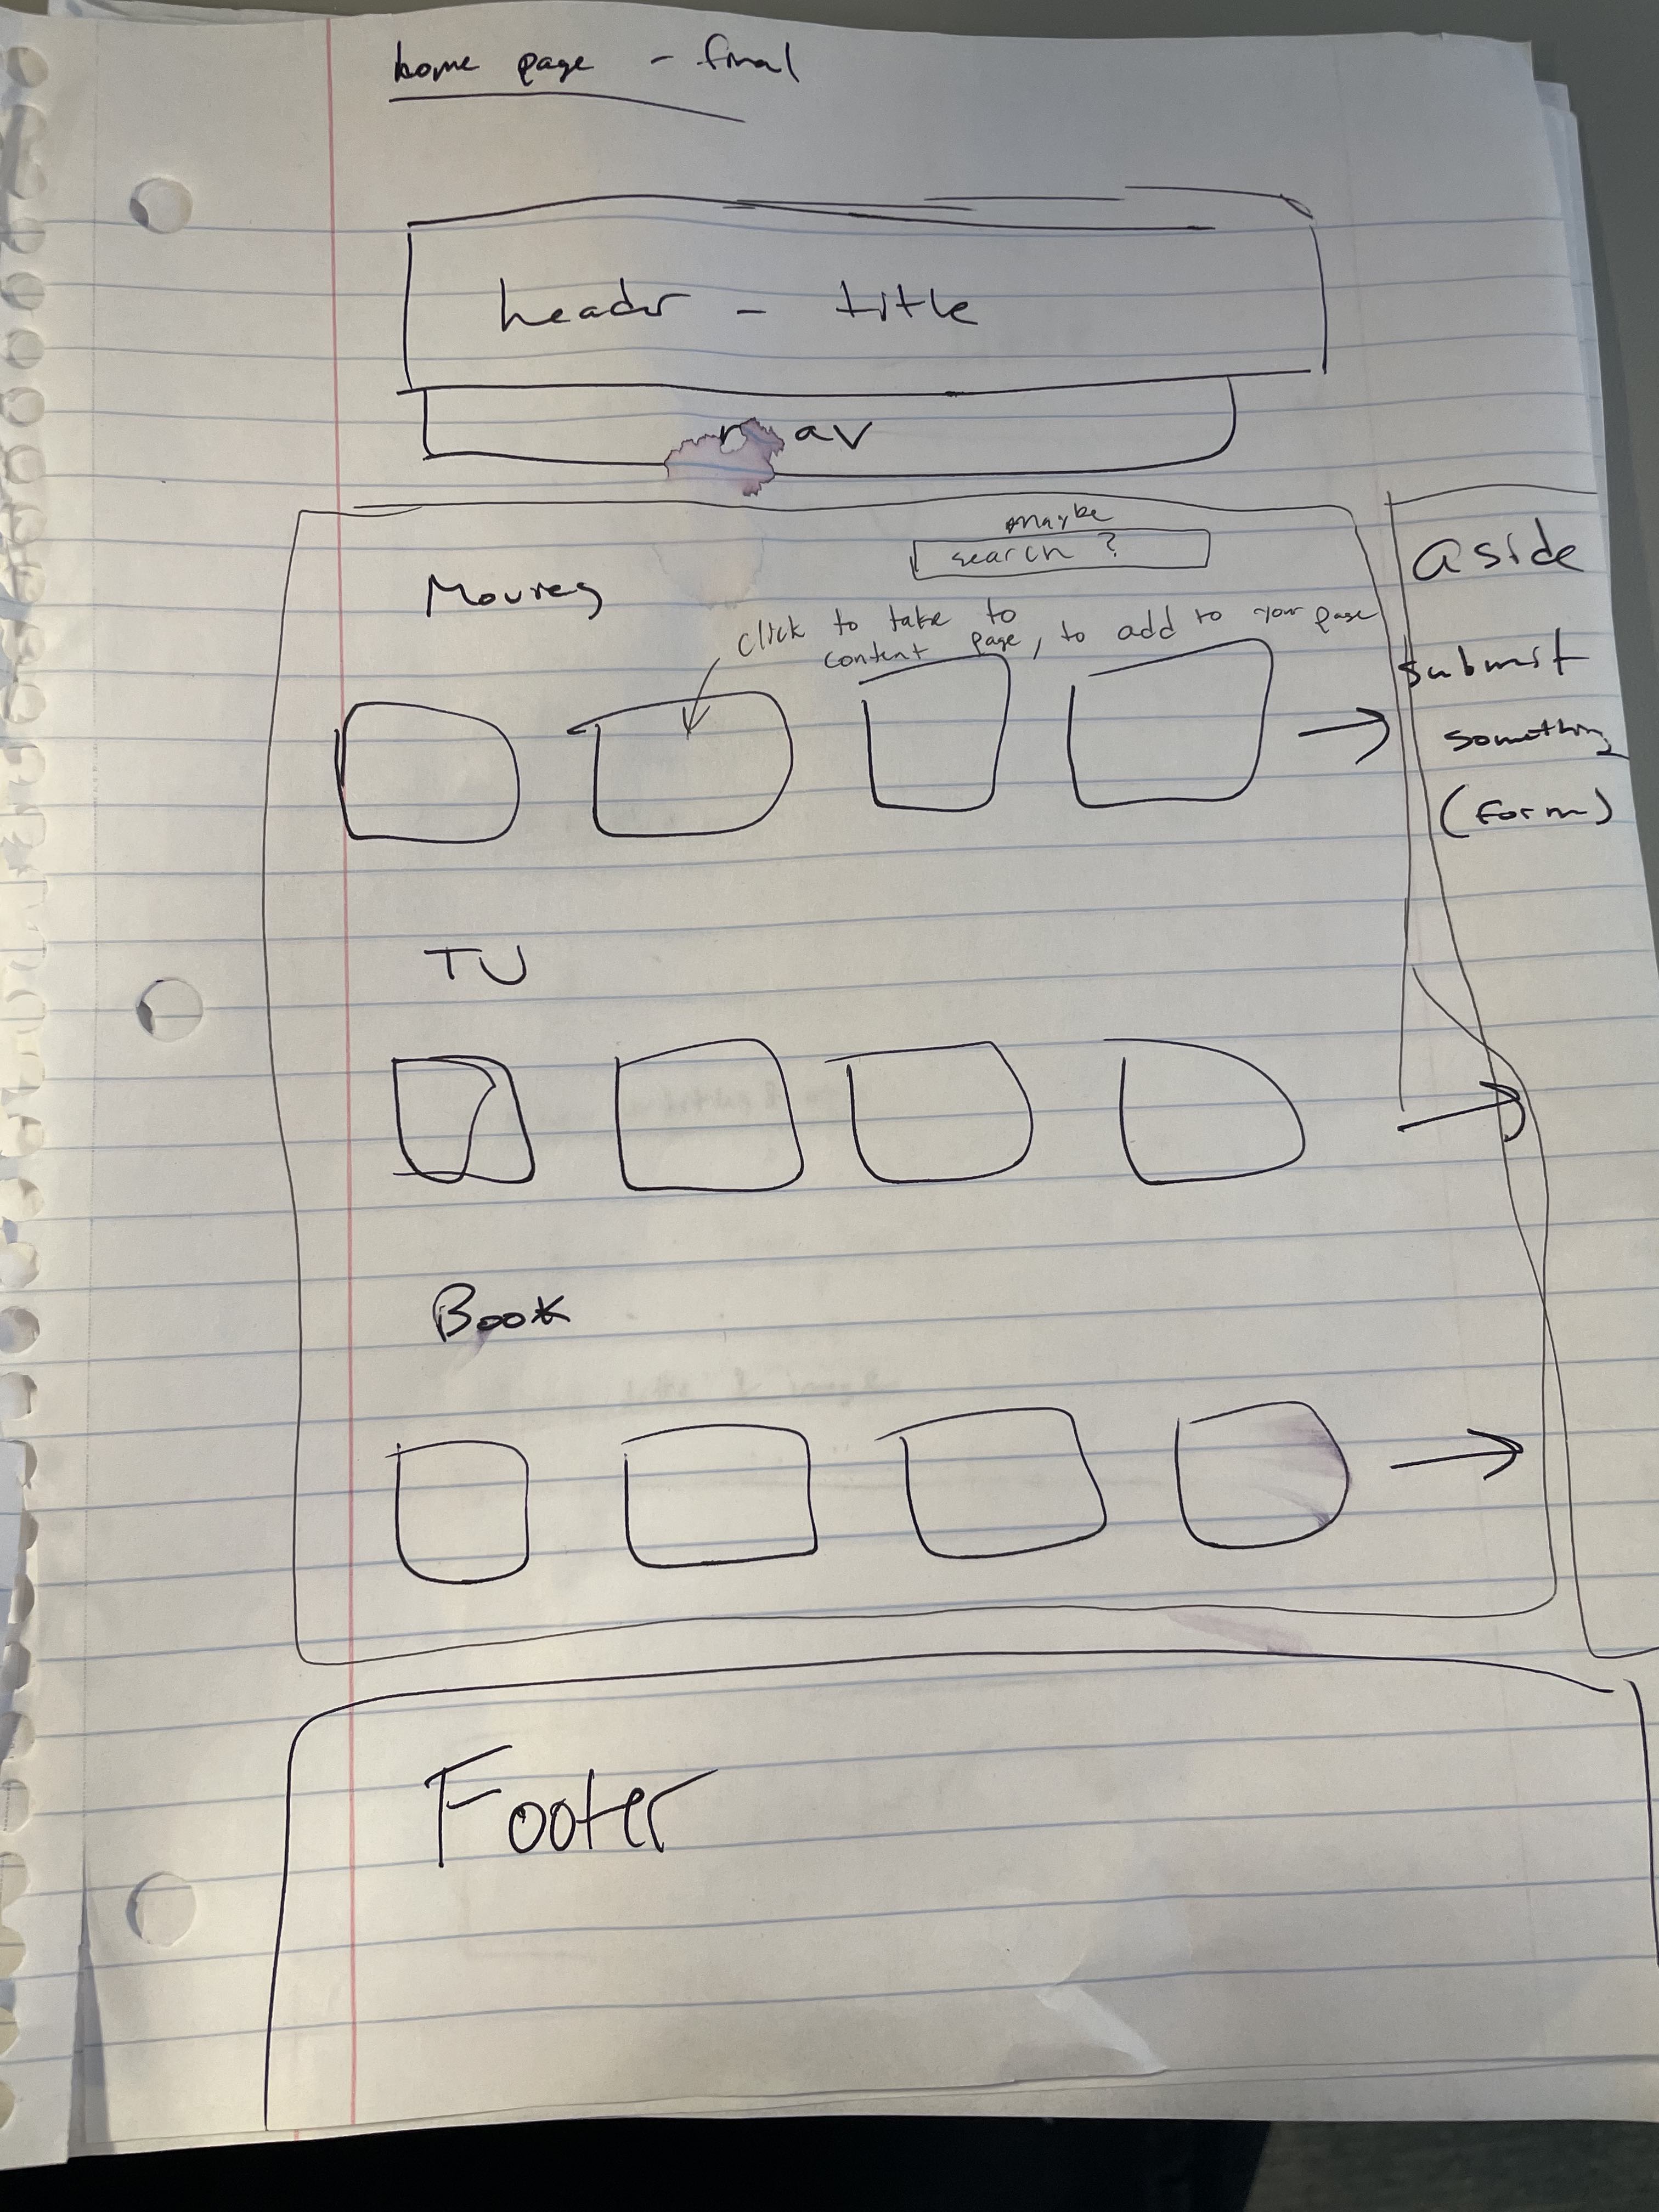 home page - final
header - title
nav
maybe
search ?
Movies
click to take to
content page, to add to your page
aside
submit
something
(form)
TV
Book
Footer